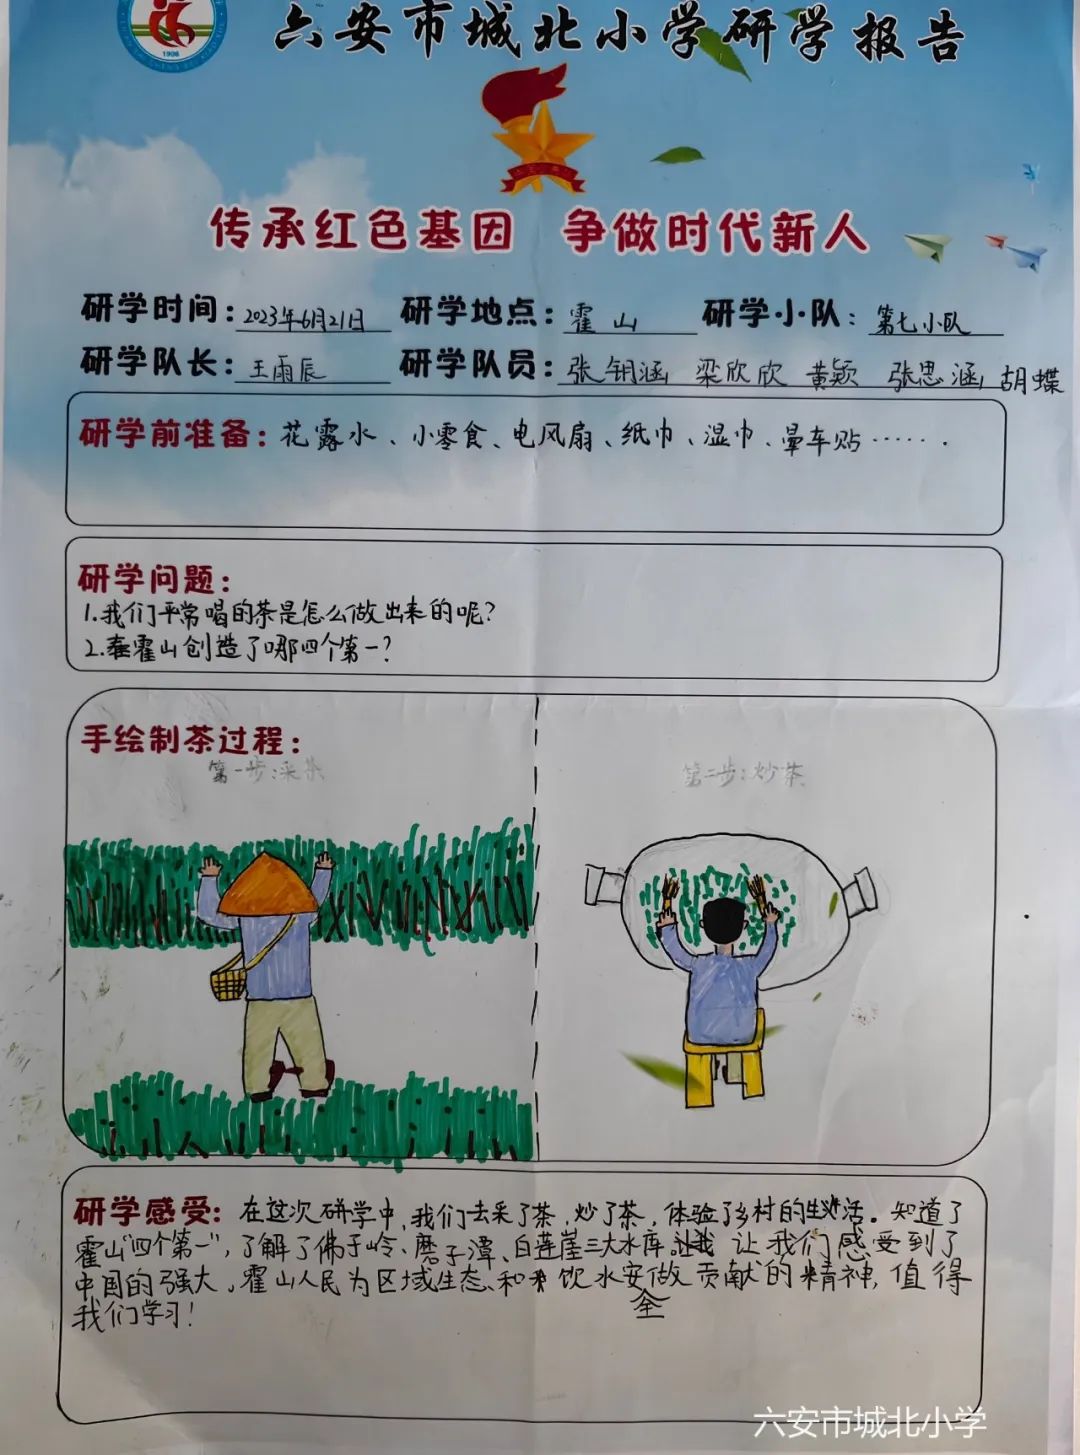 1908
六安市城北小学研学报告
传承红色基因 争做时代新人
研学时间：2023年6月21日 研学地点：霍山 研学小队：第七小队
研学队长：王雨辰 研学队员：张钥涵 梁欣欣 黄颖 张思涵 胡蝶
研学前准备：花露水、小零食、电风扇、纸巾、湿巾、晕车贴…….
研学问题：
1.我们平常喝的茶是怎么做出来的呢？
2.霍山创造了哪四个第一？
手绘制茶过程：
第一步：采茶 第二步：炒茶
研学感受：在这次研学中，我们去采了茶，炒了茶，体验了乡村的生活。知道了
霍山“四个第一”，了解了佛子岭、磨子潭、白莲崖三大水库。让我们感受到了
中国的强大，霍山人民为区域生态和饮水安全做贡献的精神，值得
我们学习！
六安市城北小学